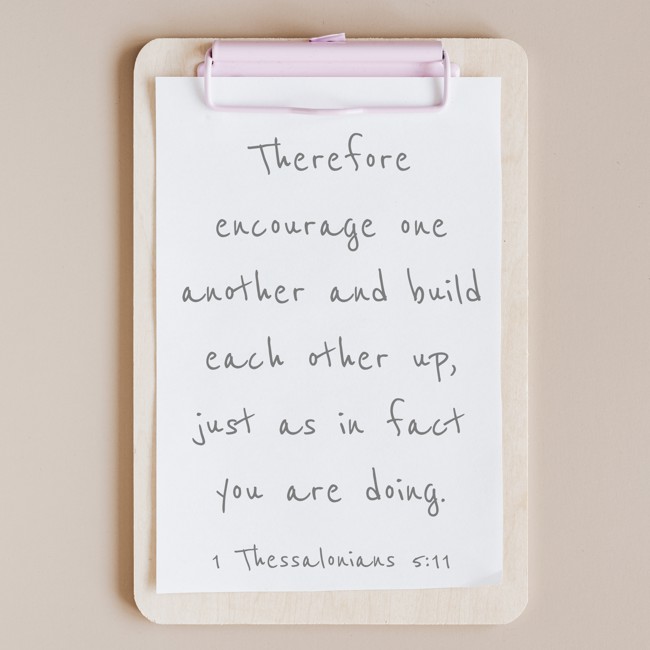 Therefore
encourage one
another and build
each other up,
just as in fact
you are doing.
1 Thessalonians 5:11